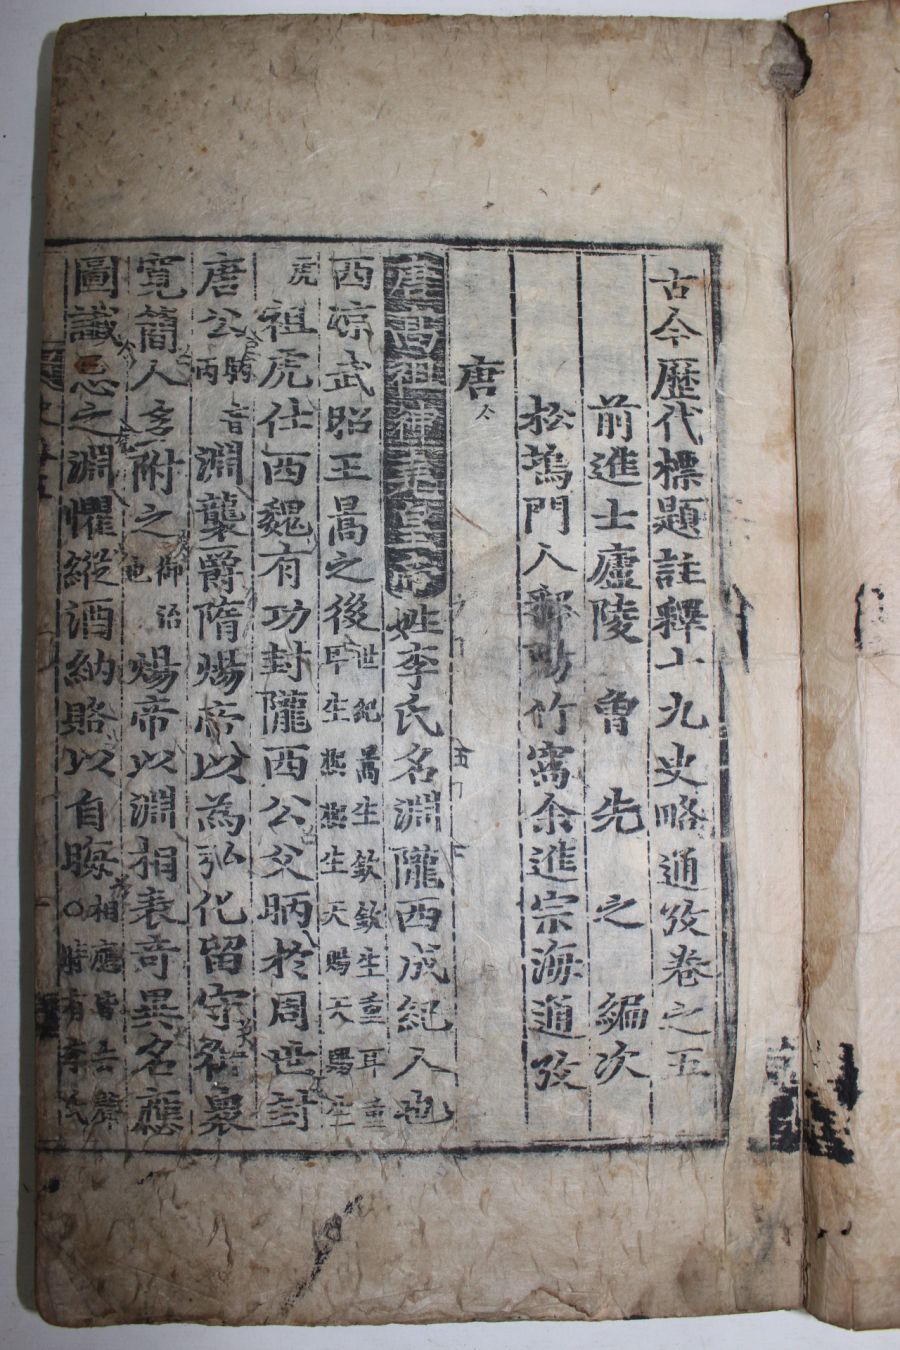 古今歷代標題註釋十九史略通攷卷之五
前進士廬陵 曾 先 之 編次
松塢門人 竹窩余進宗海通攷
唐
唐高祖神堯皇帝姓李氏名淵隴西成紀人也
西凉武昭王暠之後世紀暠生歆歆生重耳重耳生熙熙生天賜天賜生虎
祖虎仕西魏有功封隴西公父昞於周世封
唐公昞音丙淵襲爵隋煬帝以爲弘化留守御衆
寬簡人多附之御治也煬帝以淵相表奇異名應
圖讖忌之淵懼縱酒納賂以自晦○時有李氏